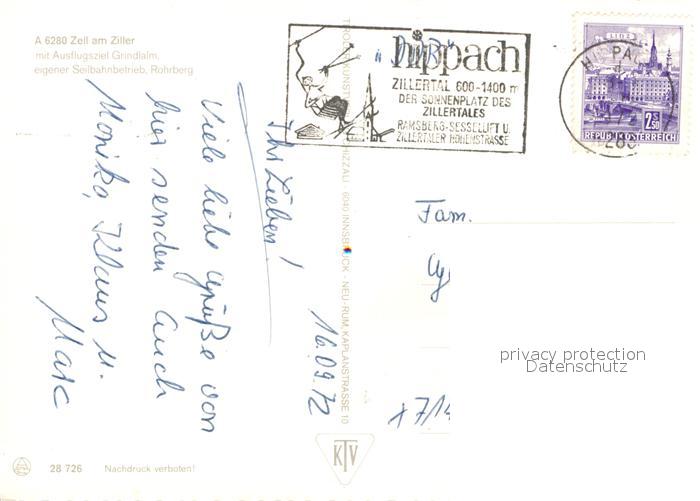 A 6280 Zell am Ziller
mit Ausflugsziel Grindlalm,
eigener Seilbahnbetrieb, Rohrberg
hippach
ZILLERTAL 600-1400 m
DER SONNENPLATZ DES
ZILLERTALES
RAMSBERG-SESSELLIFT U.
ZILLERTALER HÖHENSTRASSE
LINZ
2.50
REPUBLIK ÖSTERREICH
16.09.72
Ihr Lieben!
Viele liebe Grüße von
hier senden Euch
Monika, Klaus u.
Marc
6040 INNSBRUCK - NEU-RUM, KAPLANSTRASSE 10
Fam.
privacy protection
Datenschutz
KTV
28 726
Nachdruck verboten!